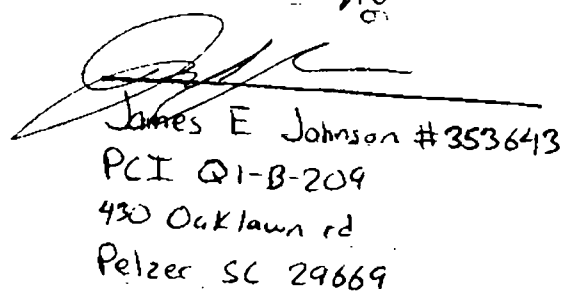 James E Johnson #353643
PCI Q1-B-209
430 Oaklawn rd
Pelzer SC 29669